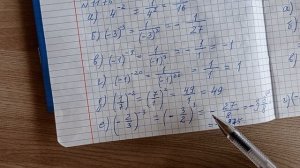 а) 4⁻² = 1/4² = 1/16
б) (-3)⁻³ = 1/(-3)³ = -1/27
в) (-1)⁻¹ = -1/1 = -1
г) (-1)⁻²⁰ = 1/(-1)²⁰ = 1/1 = 1
д) (1/7)⁻² = (7/1)² = 49/1 = 49
е) (-2/3)⁻³ = (-3/2)³ = -27/8 =